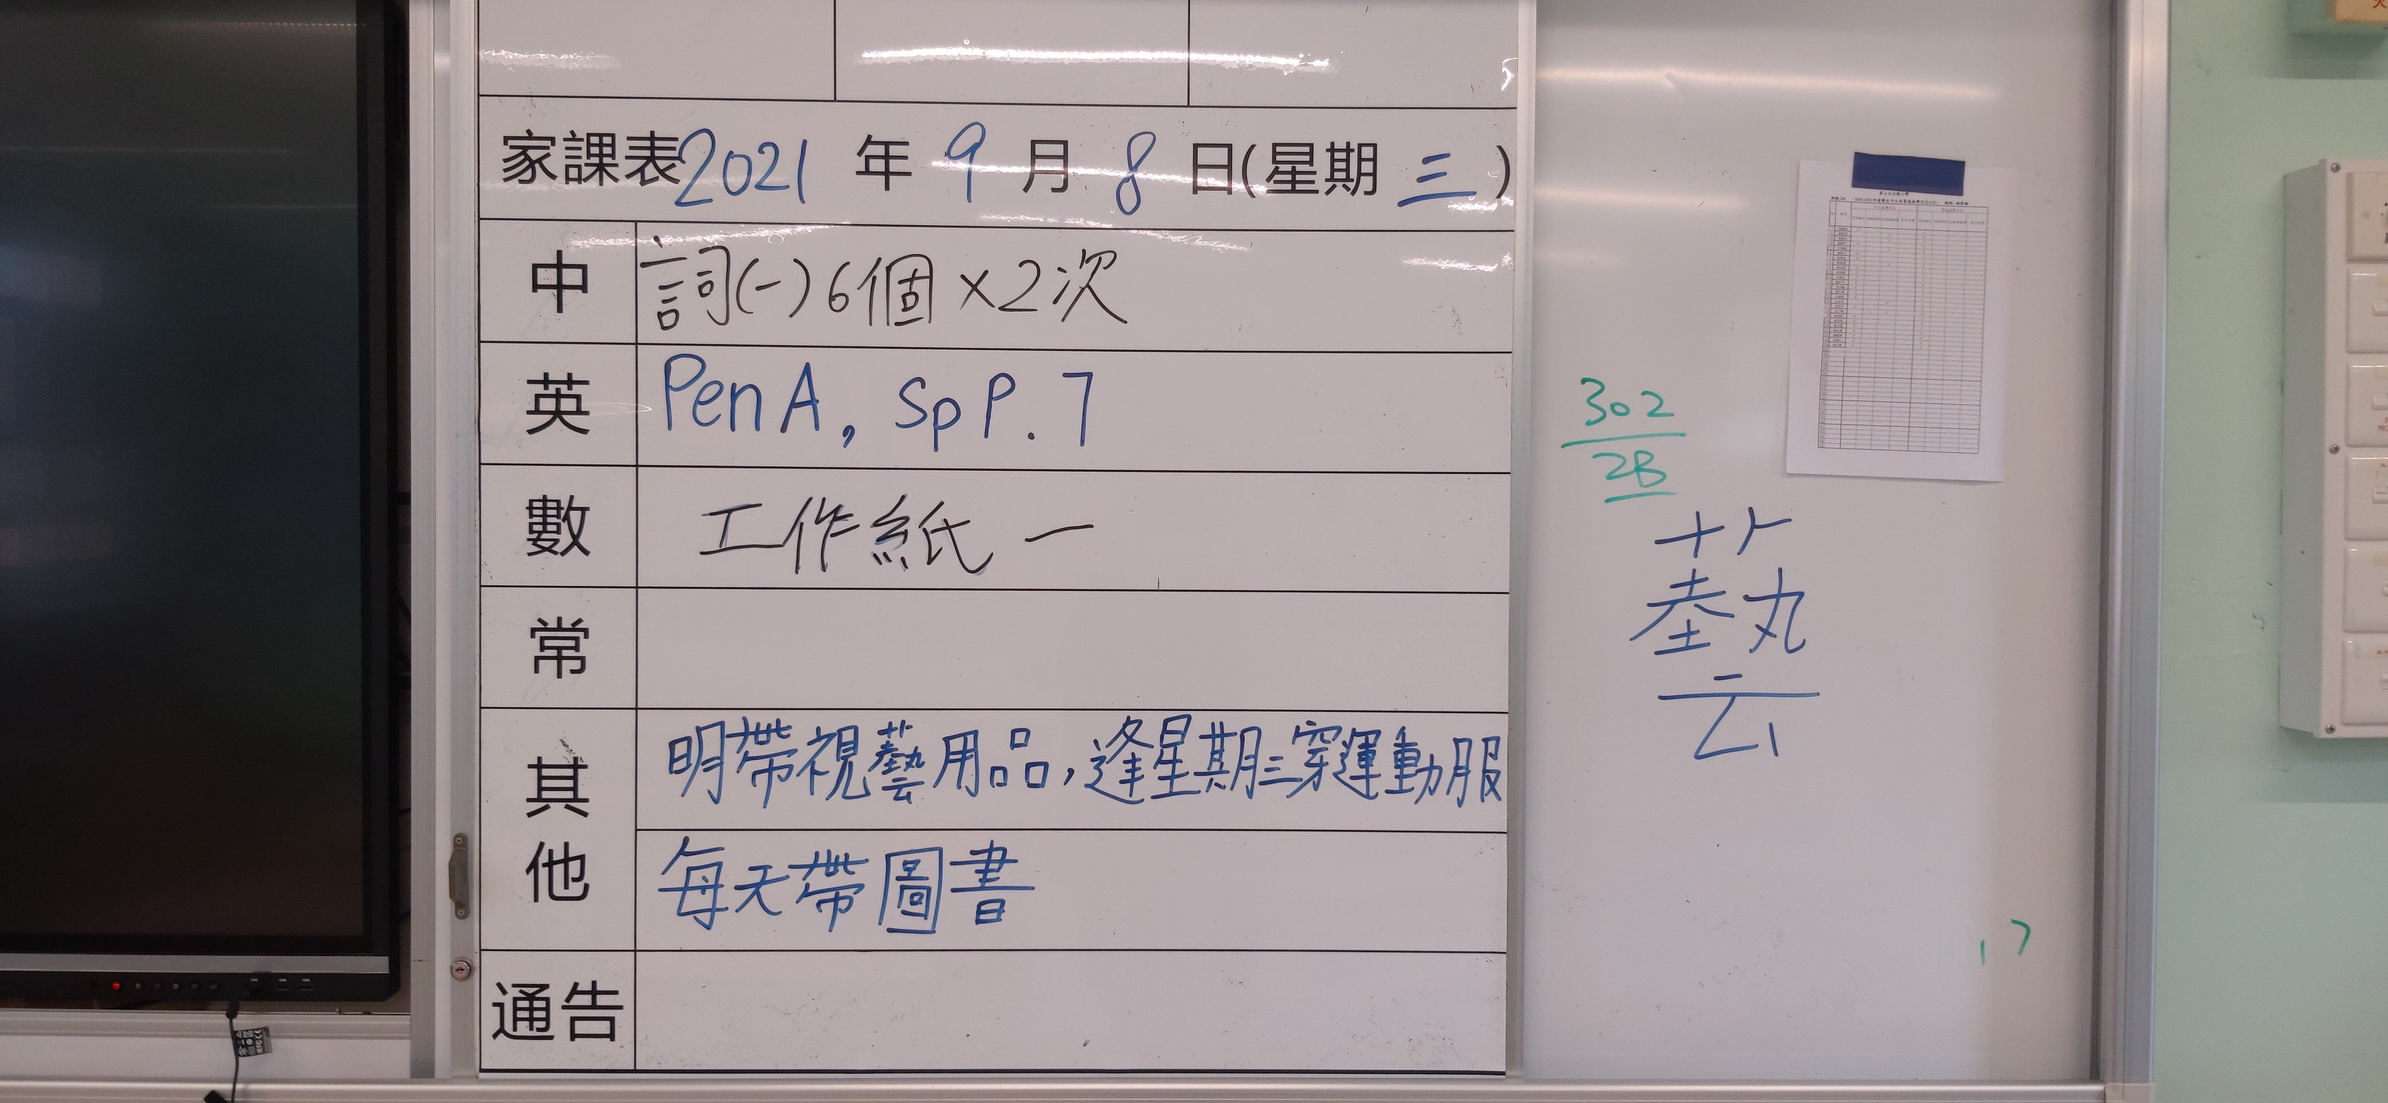 家課表2021 年 9 月 8 日(星期 三 )
中 詞(一)6個×2次
英 Pen A, Sp P. 7
數 工作紙一
常
其他 明帶視藝用品,逢星期三穿運動服
每天帶圖書
通告
302
2B
藝
17